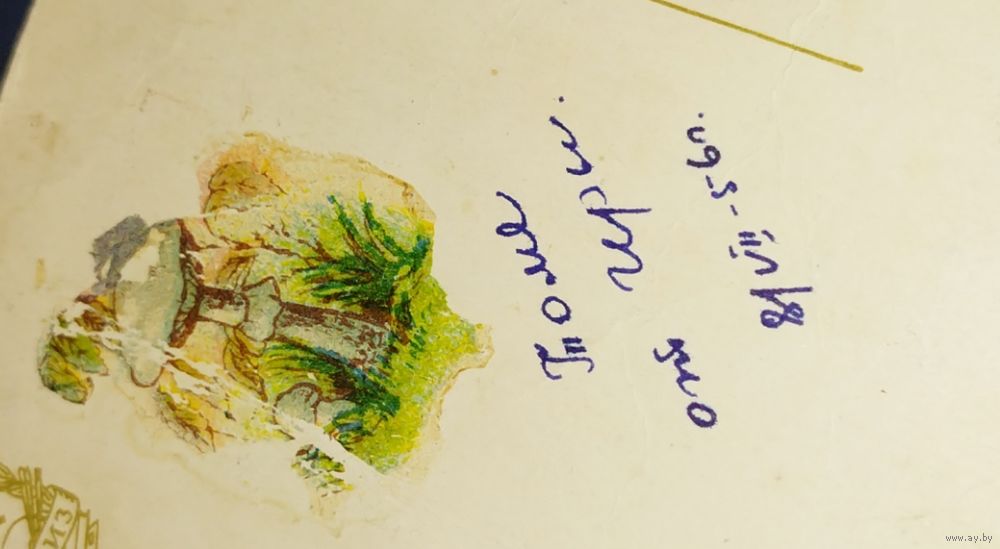 Томе
от Иры.
8/VII-56г.
ИЗ
www.ay.by